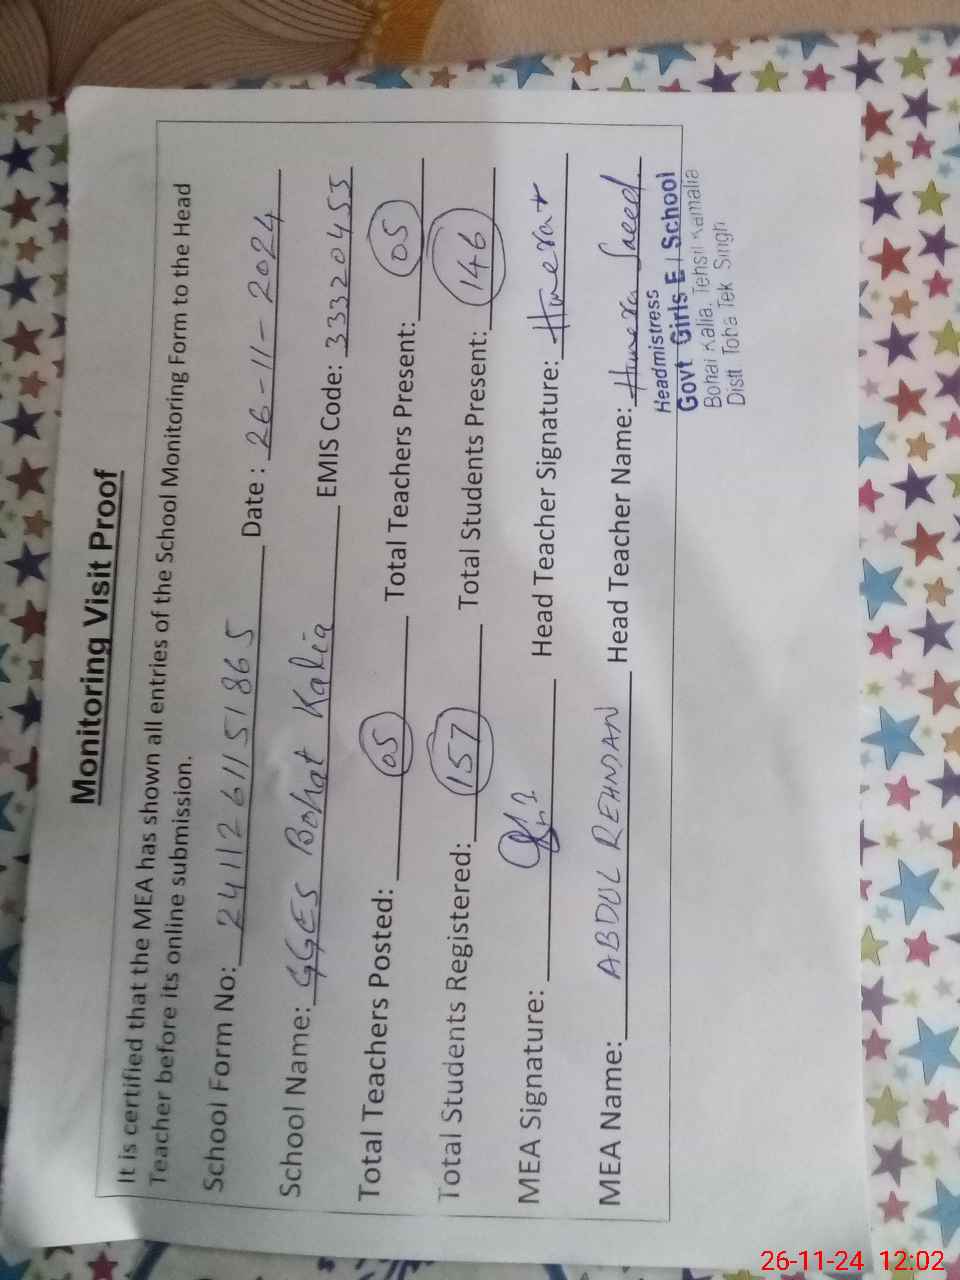 Monitoring Visit Proof
It is certified that the MEA has shown all entries of the School Monitoring Form to the Head
Teacher before its online submission.
School Form No: 2411261151865 Date : 26-11-2024
School Name: GGES Bohat Kalia EMIS Code: 33320455
Total Teachers Posted: 05 Total Teachers Present: 05
Total Students Registered: 157 Total Students Present: 146
MEA Signature: Head Teacher Signature:
MEA Name: ABDUL REHMAN Head Teacher Name: Humera Saeed.
Headmistress
Govt Girls E / School
Bohai Kalia, Tehsil Kamalia
Distt Toba Tek Singh
26-11-24 12:02